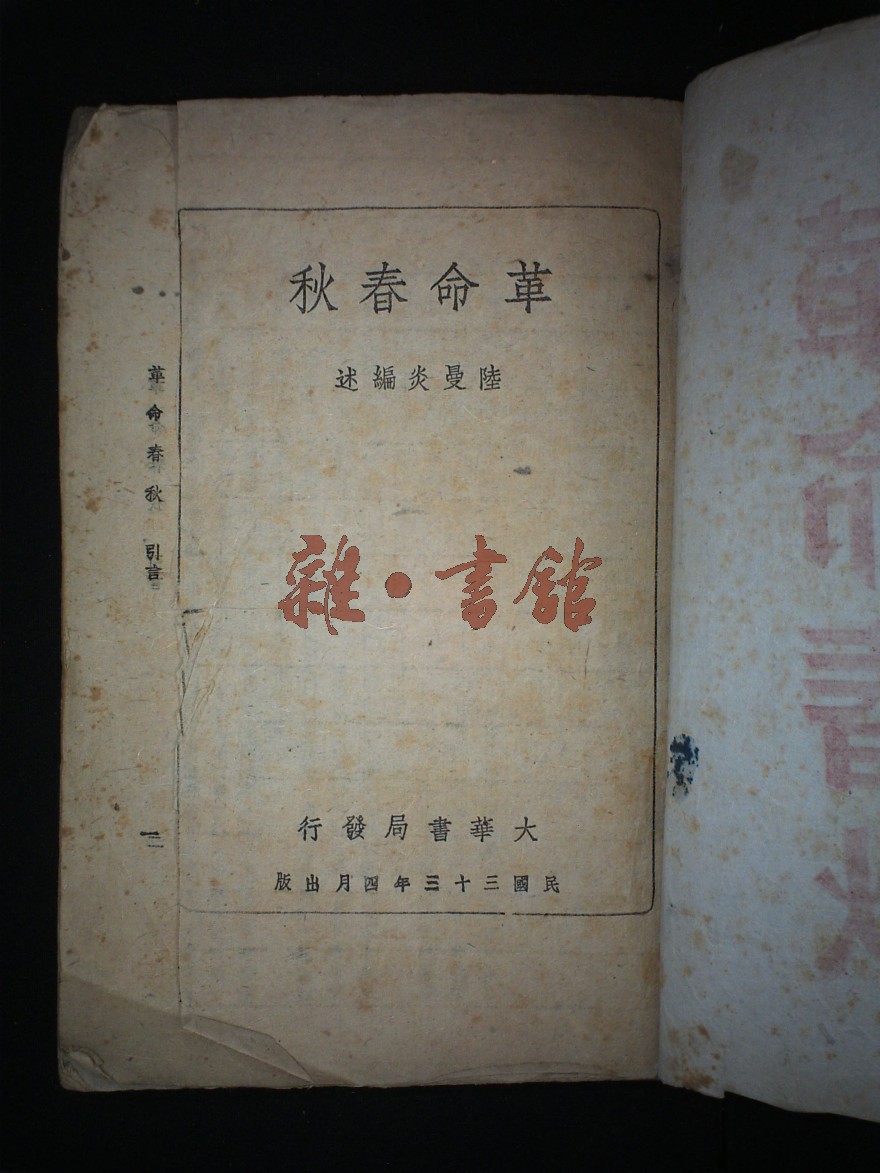 革命春秋
陸曼炎編述
雜·書館
大華書局發行
民國三十三年四月出版
革命春秋 引言